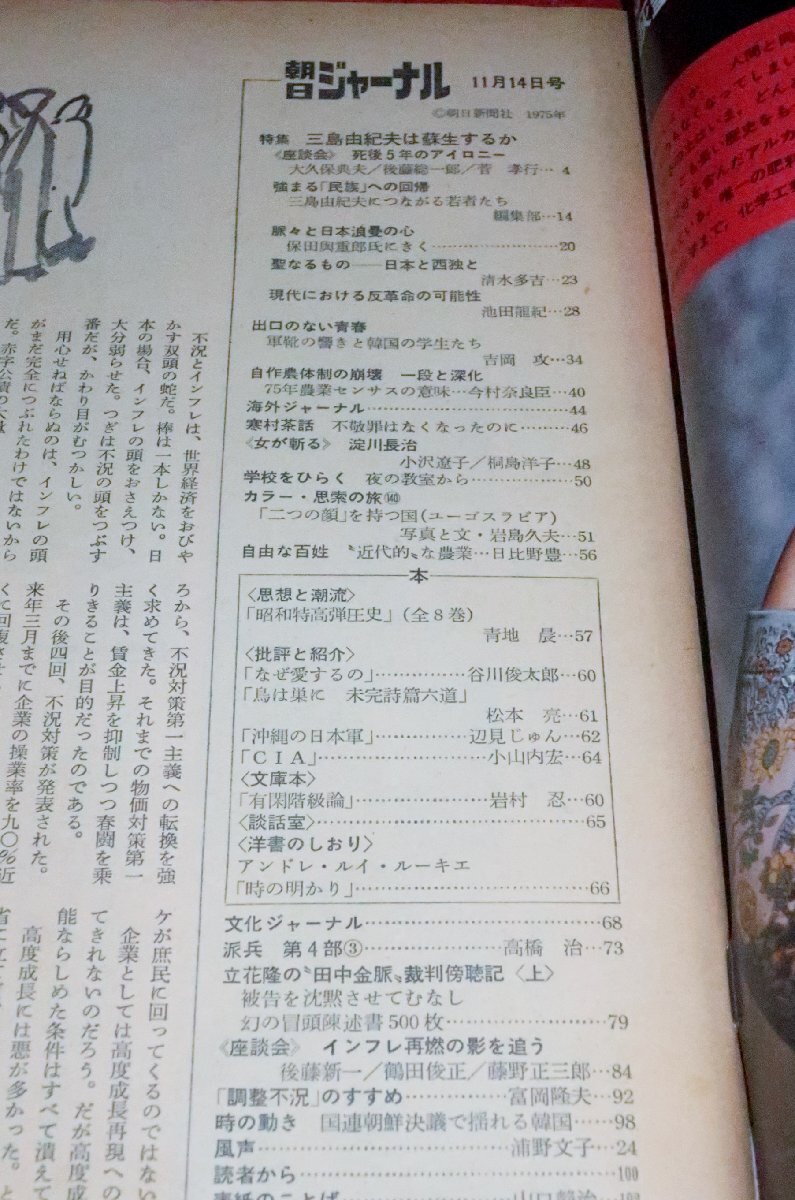 朝日ジャーナル 11月14日号
©朝日新聞社 1975年
特集 三島由紀夫は蘇生するか
《座談会》 死後5年のアイロニー
大久保典夫／後藤総一郎／菅 孝行…4
強まる「民族」への回帰
三島由紀夫につながる若者たち
編集部…14
脈々と日本浪曼の心
保田與重郎氏にきく…20
聖なるもの――日本と西独と
清水多吉…23
現代における反革命の可能性
池田龍紀…28
出口のない青春
軍靴の響きと韓国の学生たち
吉岡 攻…34
自作農体制の崩壊 一段と深化
75年農業センサスの意味…今村奈良臣…40
海外ジャーナル…44
寒村茶話 不敬罪はなくなったのに…46
《女が斬る》 淀川長治
小沢遼子／桐島洋子…48
学校をひらく 夜の教室から…50
カラー・思索の旅(140)
「二つの顔」を持つ国(ユーゴスラビア)
写真と文・岩島久夫…51
自由な百姓 〝近代的〟な農業…日比野豊…56
本
〈思想と潮流〉
「昭和特高弾圧史」(全8巻)
青地 晨…57
〈批評と紹介〉
「なぜ愛するの」…谷川俊太郎…60
「鳥は巣に 未完詩篇六道」
松本 亮…61
「沖縄の日本軍」…辺見じゅん…62
「CIA」…小山内宏…64
〈文庫本〉
「有閑階級論」…岩村 忍…60
〈談話室〉…65
〈洋書のしおり〉
アンドレ・ルイ・ルーキエ
「時の明かり」…66
文化ジャーナル…68
派兵 第4部③…高橋 治…73
立花隆の〝田中金脈〟裁判傍聴記〈上〉
被告を沈黙させてむなし
幻の冒頭陳述書500枚…79
《座談会》 インフレ再燃の影を追う
後藤新一／鶴田俊正／藤野正三郎…84
「調整不況」のすすめ…富岡隆夫…92
時の動き 国連朝鮮決議で揺れる韓国…98
風声…浦野文子…24
読者から…100
表紙のことば
不況とインフレは、世界経済をおびや
かす双頭の蛇だ。棒は一本しかない。日
本の場合、インフレの頭をおさえつけ、
大分弱らせた。つぎは不況の頭をつぶす
番だが、かわり目がむつかしい。
用心せねばならぬのは、インフレの頭
がまだ完全につぶれたわけではないから
だ。赤字公債の大量
ろから、不況対策第一主義への転換を強
く求めてきた。それまでの物価対策第一
主義は、賃金上昇を抑制しつつ春闘を乗
りきることが目的だったのである。
その後四回、不況対策が発表された。
来年三月までに企業の操業率を九〇％近
くに回復させ
ケが庶民に回ってくるのではない
企業としては高度成長再現への
てきれないのだろう。だが高度成
能ならしめた条件はすべて潰えて
高度成長には悪が多かった。と
人間と
なくなってしまし
いま、どん
歴史をも
含んだアルカ
唯一の肥料
まで、化学工業